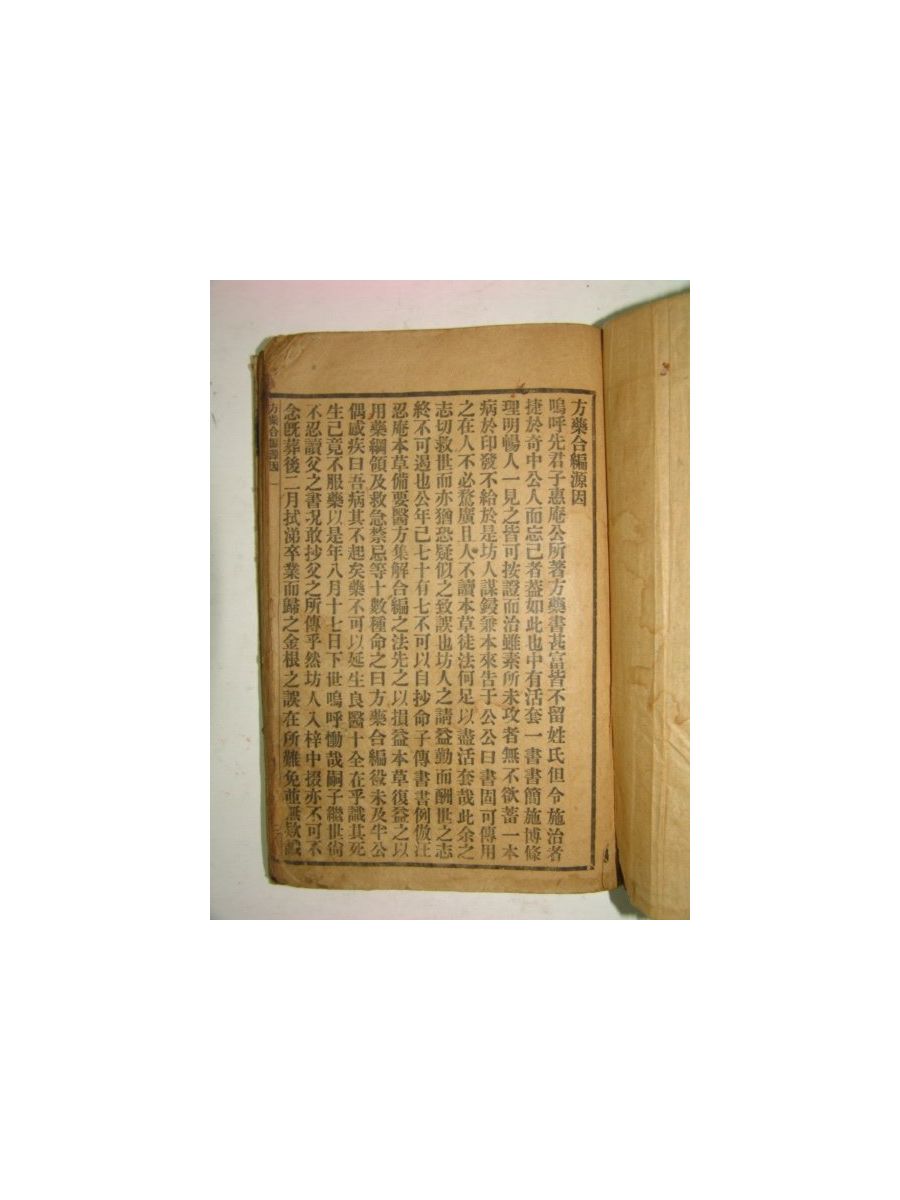 方藥合編源因
嗚呼先君子惠庵公所著方藥書甚富皆不留姓氏但令施治者
捷於奇中公人而忘己者蓋如此也中有活套一書書簡施博條
理明暢人一見之皆可按證而治雖素所未攻者無不欲蓄一本
病於印發不給於是坊人謀鋟兼本來告于公公曰書固可傳用
之在人不必騖廣且人不讀本草徒法何足以盡活套哉此余之
志切救世而亦猶恐疑似之致誤也坊人之請益勤而酬世之志
終不可遏也公年已七十有七不可以自抄命子傳書書例倣汪
忍庵本草備要醫方集解合編之法先之以損益本草復益之以
用藥綱領及救急禁忌等十數種命之曰方藥合編役未及半公
偶感疾曰吾病其不起矣藥不可以延生良醫十全在乎識其死
生已竟不服藥以是年八月十七日下世嗚呼慟哉嗣子繼世尙
不忍讀父之書况敢抄父之所傳乎然坊人入梓中掇亦不可不
念旣葬後二月拭涕卒業而歸之金根之誤在所難免並無欵識
方藥合編源因 一